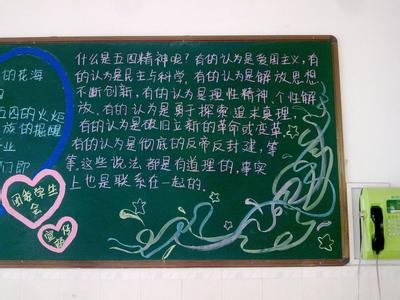 的花海
五四的火炬
族的提醒
业
门即
团委学生
会
宣传部
什么是五四精神呢?有的认为是爱国主义,有
的认为是民主与科学,有的认为是解放思想、
不断创新,有的认为是理性精神、个性解
放,有的认为是勇于探索、追求真理,
有的认为是破旧立新的革命或变革,
有的认为是彻底的反帝反封建,等
等,这些说法都是有道理的,事实
上也是联系在一起的。